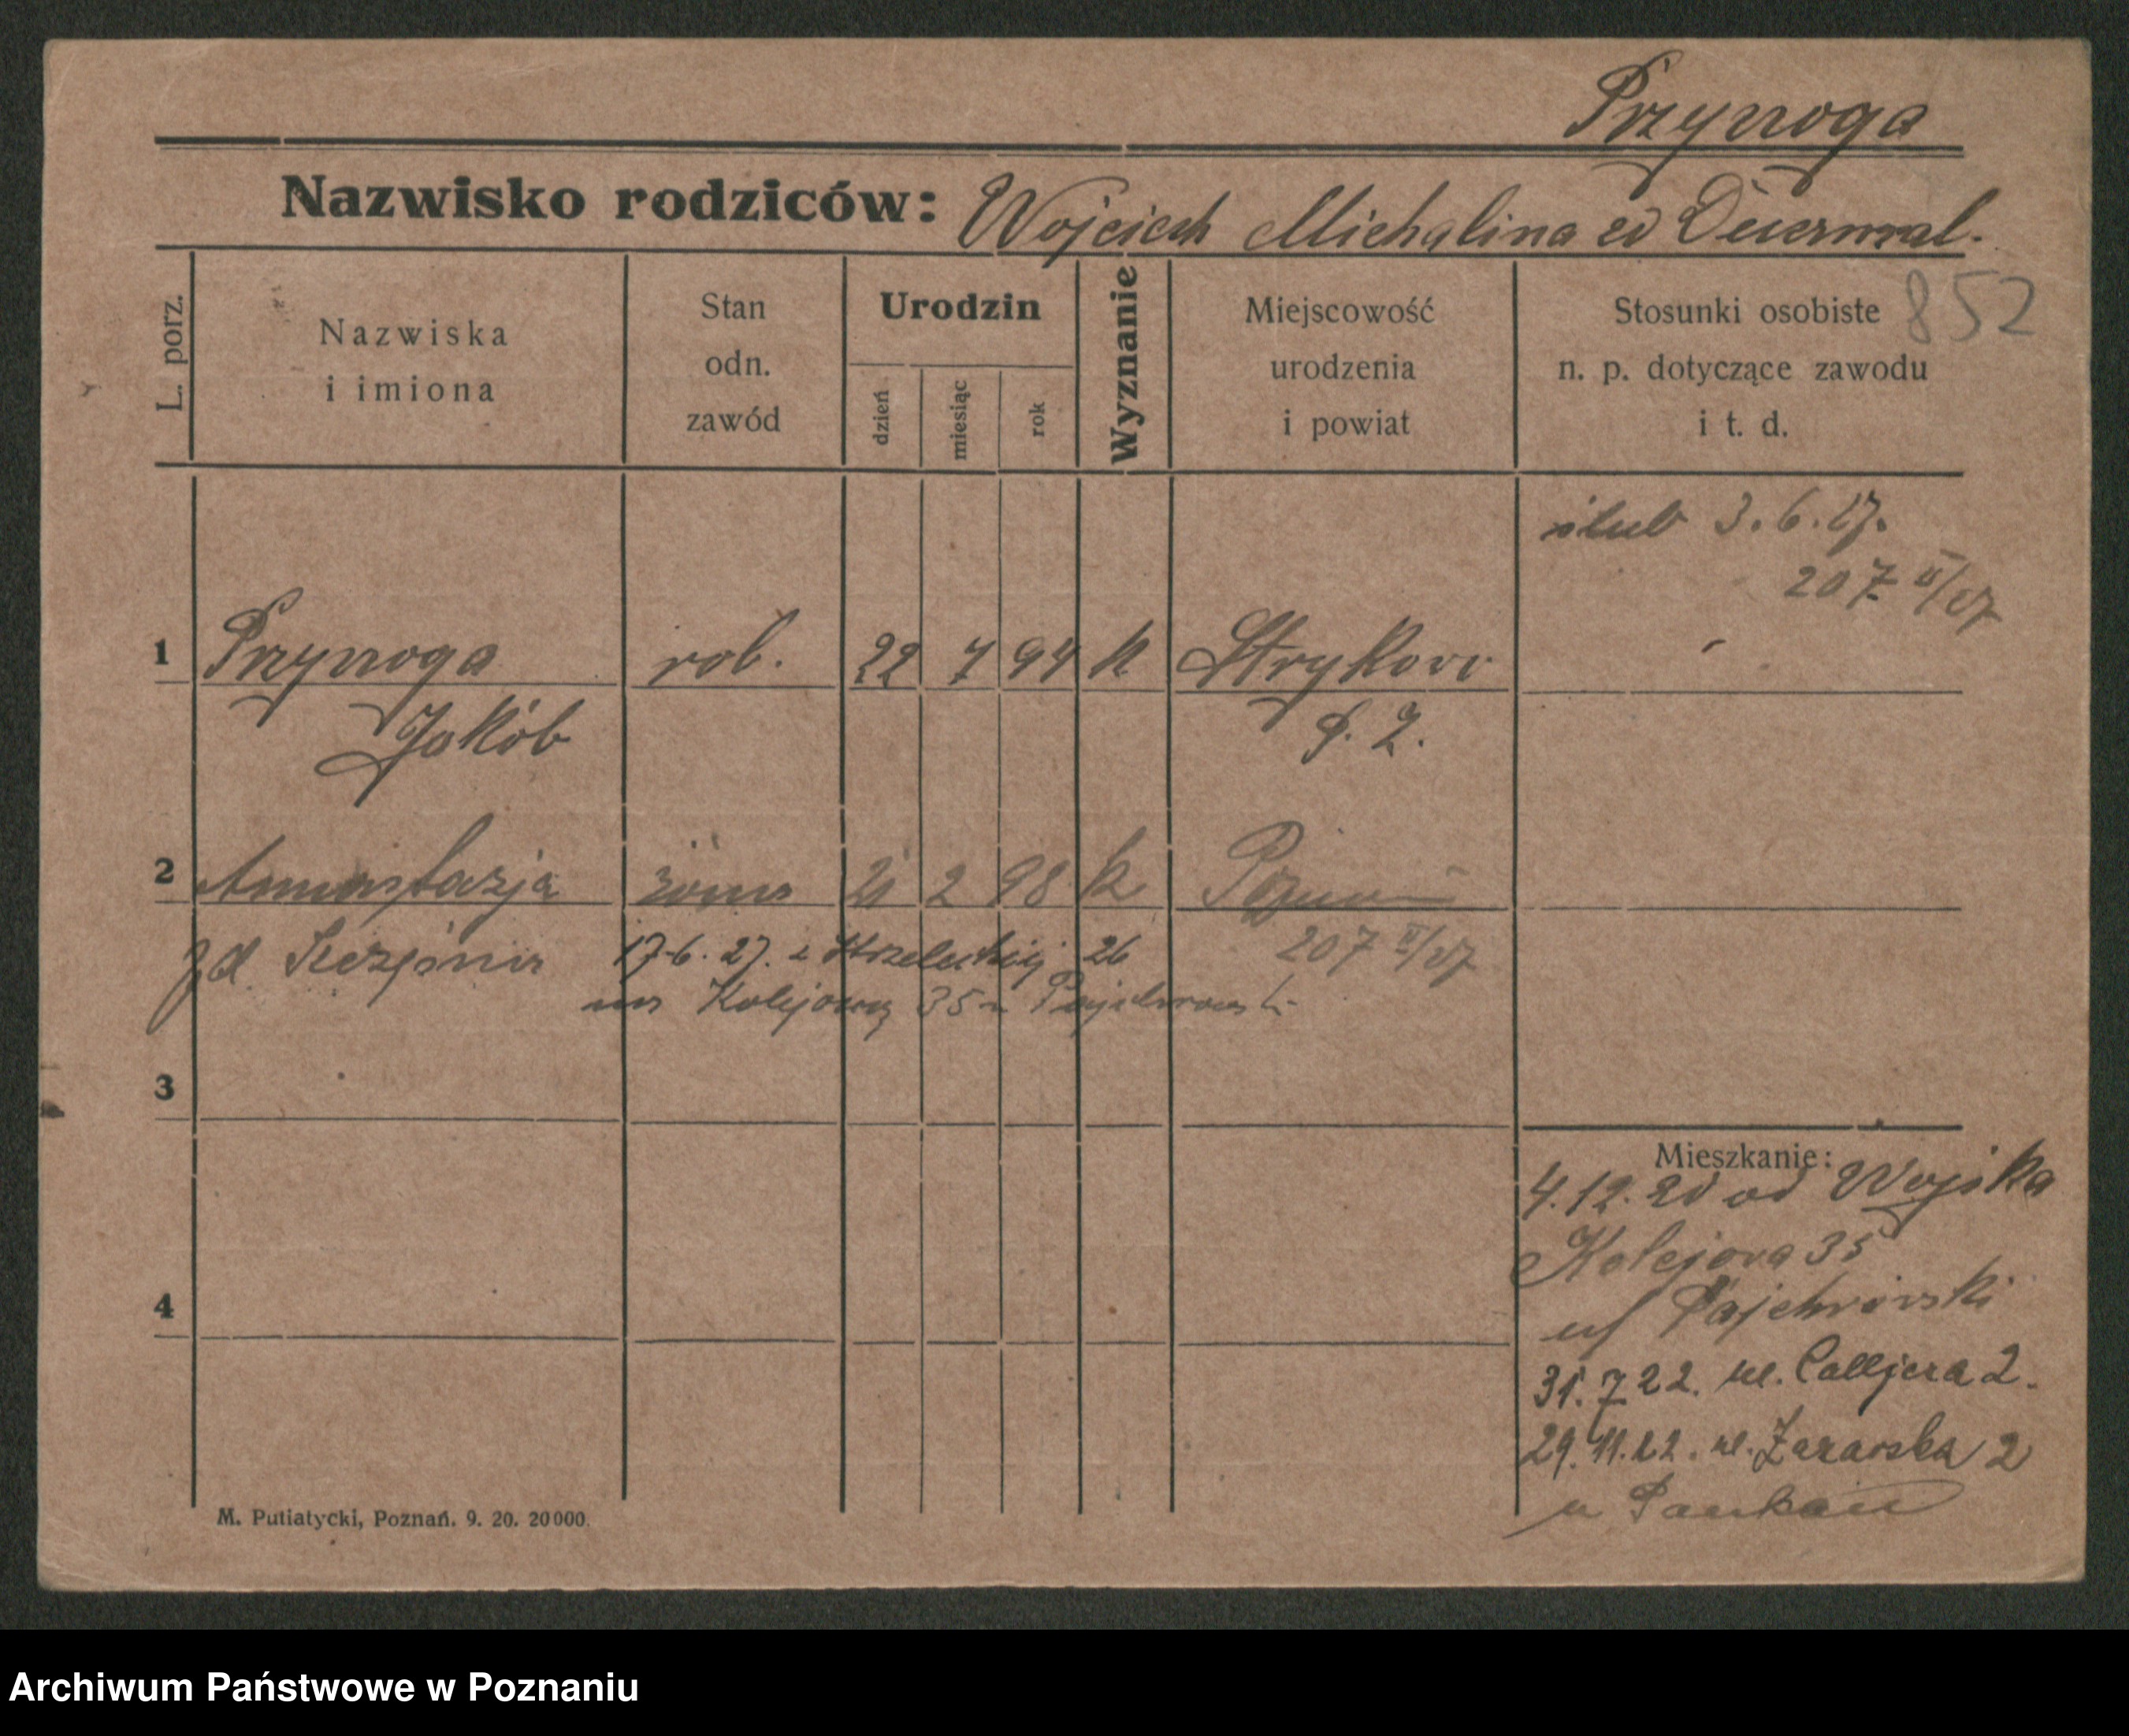 Przynoga
Nazwisko rodziców: Wojciech Michalina zd
852
L. porz.
Nazwiska
i imiona
Stan
odn.
zawód
Urodzin
dzień
miesiąc
rok
Wyznanie
Miejscowość
urodzenia
i powiat
Stosunki osobiste
n. p. dotyczące zawodu
i t. d.
ślub 3.6.27.
207 II/27
1 Przynoga rob. 22 7 94 k Strykowo
Jakób
2 żona 21 2 98 k Poznań
zd. 17.6.27. z Strzeleckiej 26 207 II/27
na Kolejową 35
3
4
Mieszkanie:
4.12.20 od Wojska
Kolejowa 35
Pajchrowski
31.7.22. ul. 2.
29.11.22. ul. 2
M. Putiatycki, Poznań. 9. 20. 20000.
Archiwum Państwowe w Poznaniu